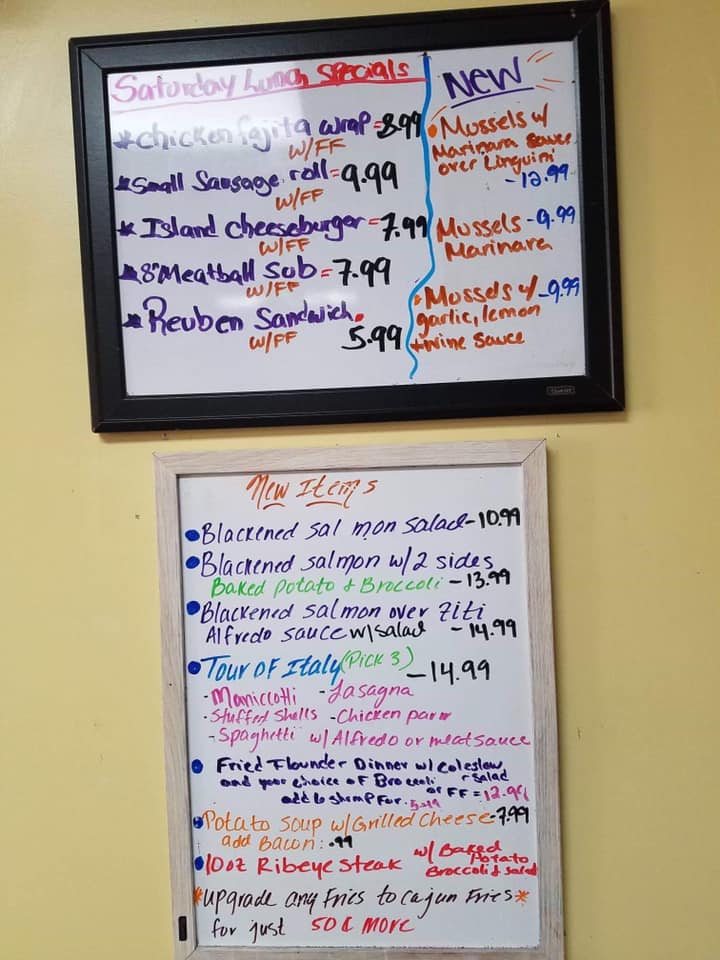 Saturday Lunch Specials
*Chicken fajita wrap=8.99
w/FF
*Small Sausage roll=9.99
w/FF
*Island cheeseburger=7.99
w/FF
*8"Meatball sub=7.99
w/FF
*Reuben Sandwich.
w/FF
5.99
NEW
•Mussels w/
Marinara sauce
over Linguini
-12.99
Mussels-9.99
Marinara
•Mussels w/-9.99
garlic, lemon
+wine sauce
New Items
•Blackened salmon salad-10.99
•Blackened salmon w/2 sides
Baked potato & Broccoli -13.99
•Blackened salmon over ziti
Alfredo sauce w/salad -14.99
•Tour OF Italy(Pick 3) -14.99
-Maniccotti -Lasagna
-Stuffed Shells -Chicken parm
-Spaghetti w/Alfredo or meat sauce
•Fried Flounder Dinner w/coleslaw
and your choice of Broccoli or salad
or FF =12.99
add 6 shrimp for 5.99
•Potato Soup w/Grilled Cheese-7.99
add Bacon: .99
•10oz Ribeye steak w/Baked
Potato
Broccoli & salad
*upgrade any Fries to cajun Fries*
for just 50¢ more